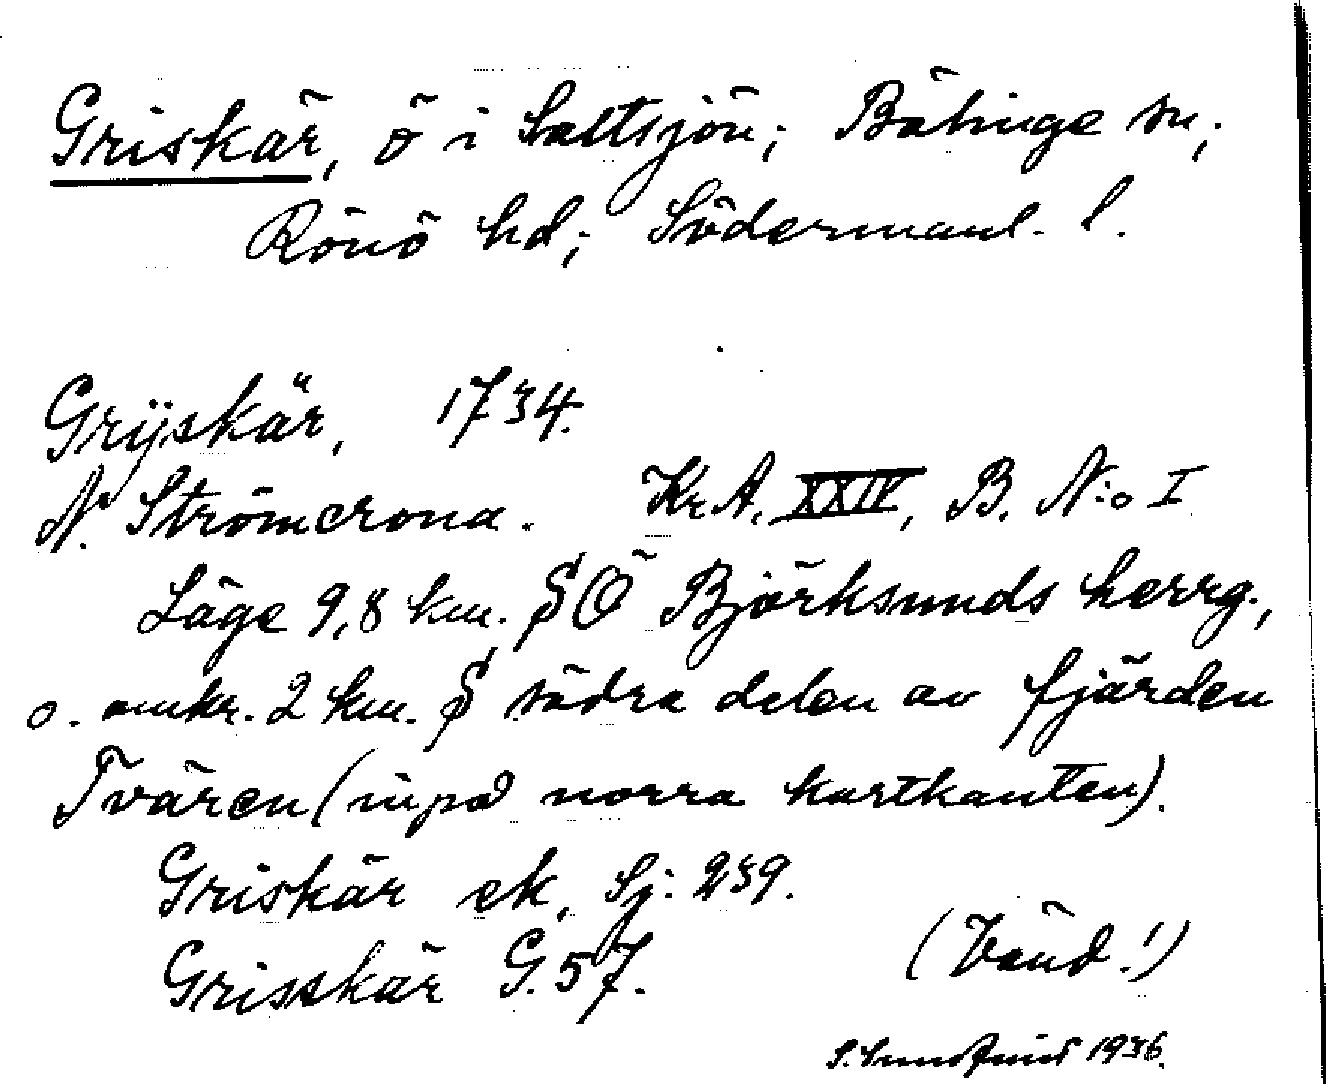 Griskär, ö i Saltsjön; Bälinge sn;
Rönö hd; Södermanl. l.
Grÿskär, 1734.
N. Strömcrona. Kr A. XXIV, B. N:o I
Läge 9,8 km. SÖ Björksunds herrg.,
o. omkr. 2 km. S södra delen av fjärden
Tvären (inpå norra kartkanten).
Griskär ek, Sj: 239.
Grisskär G. 57.
(Vänd!)
1936.